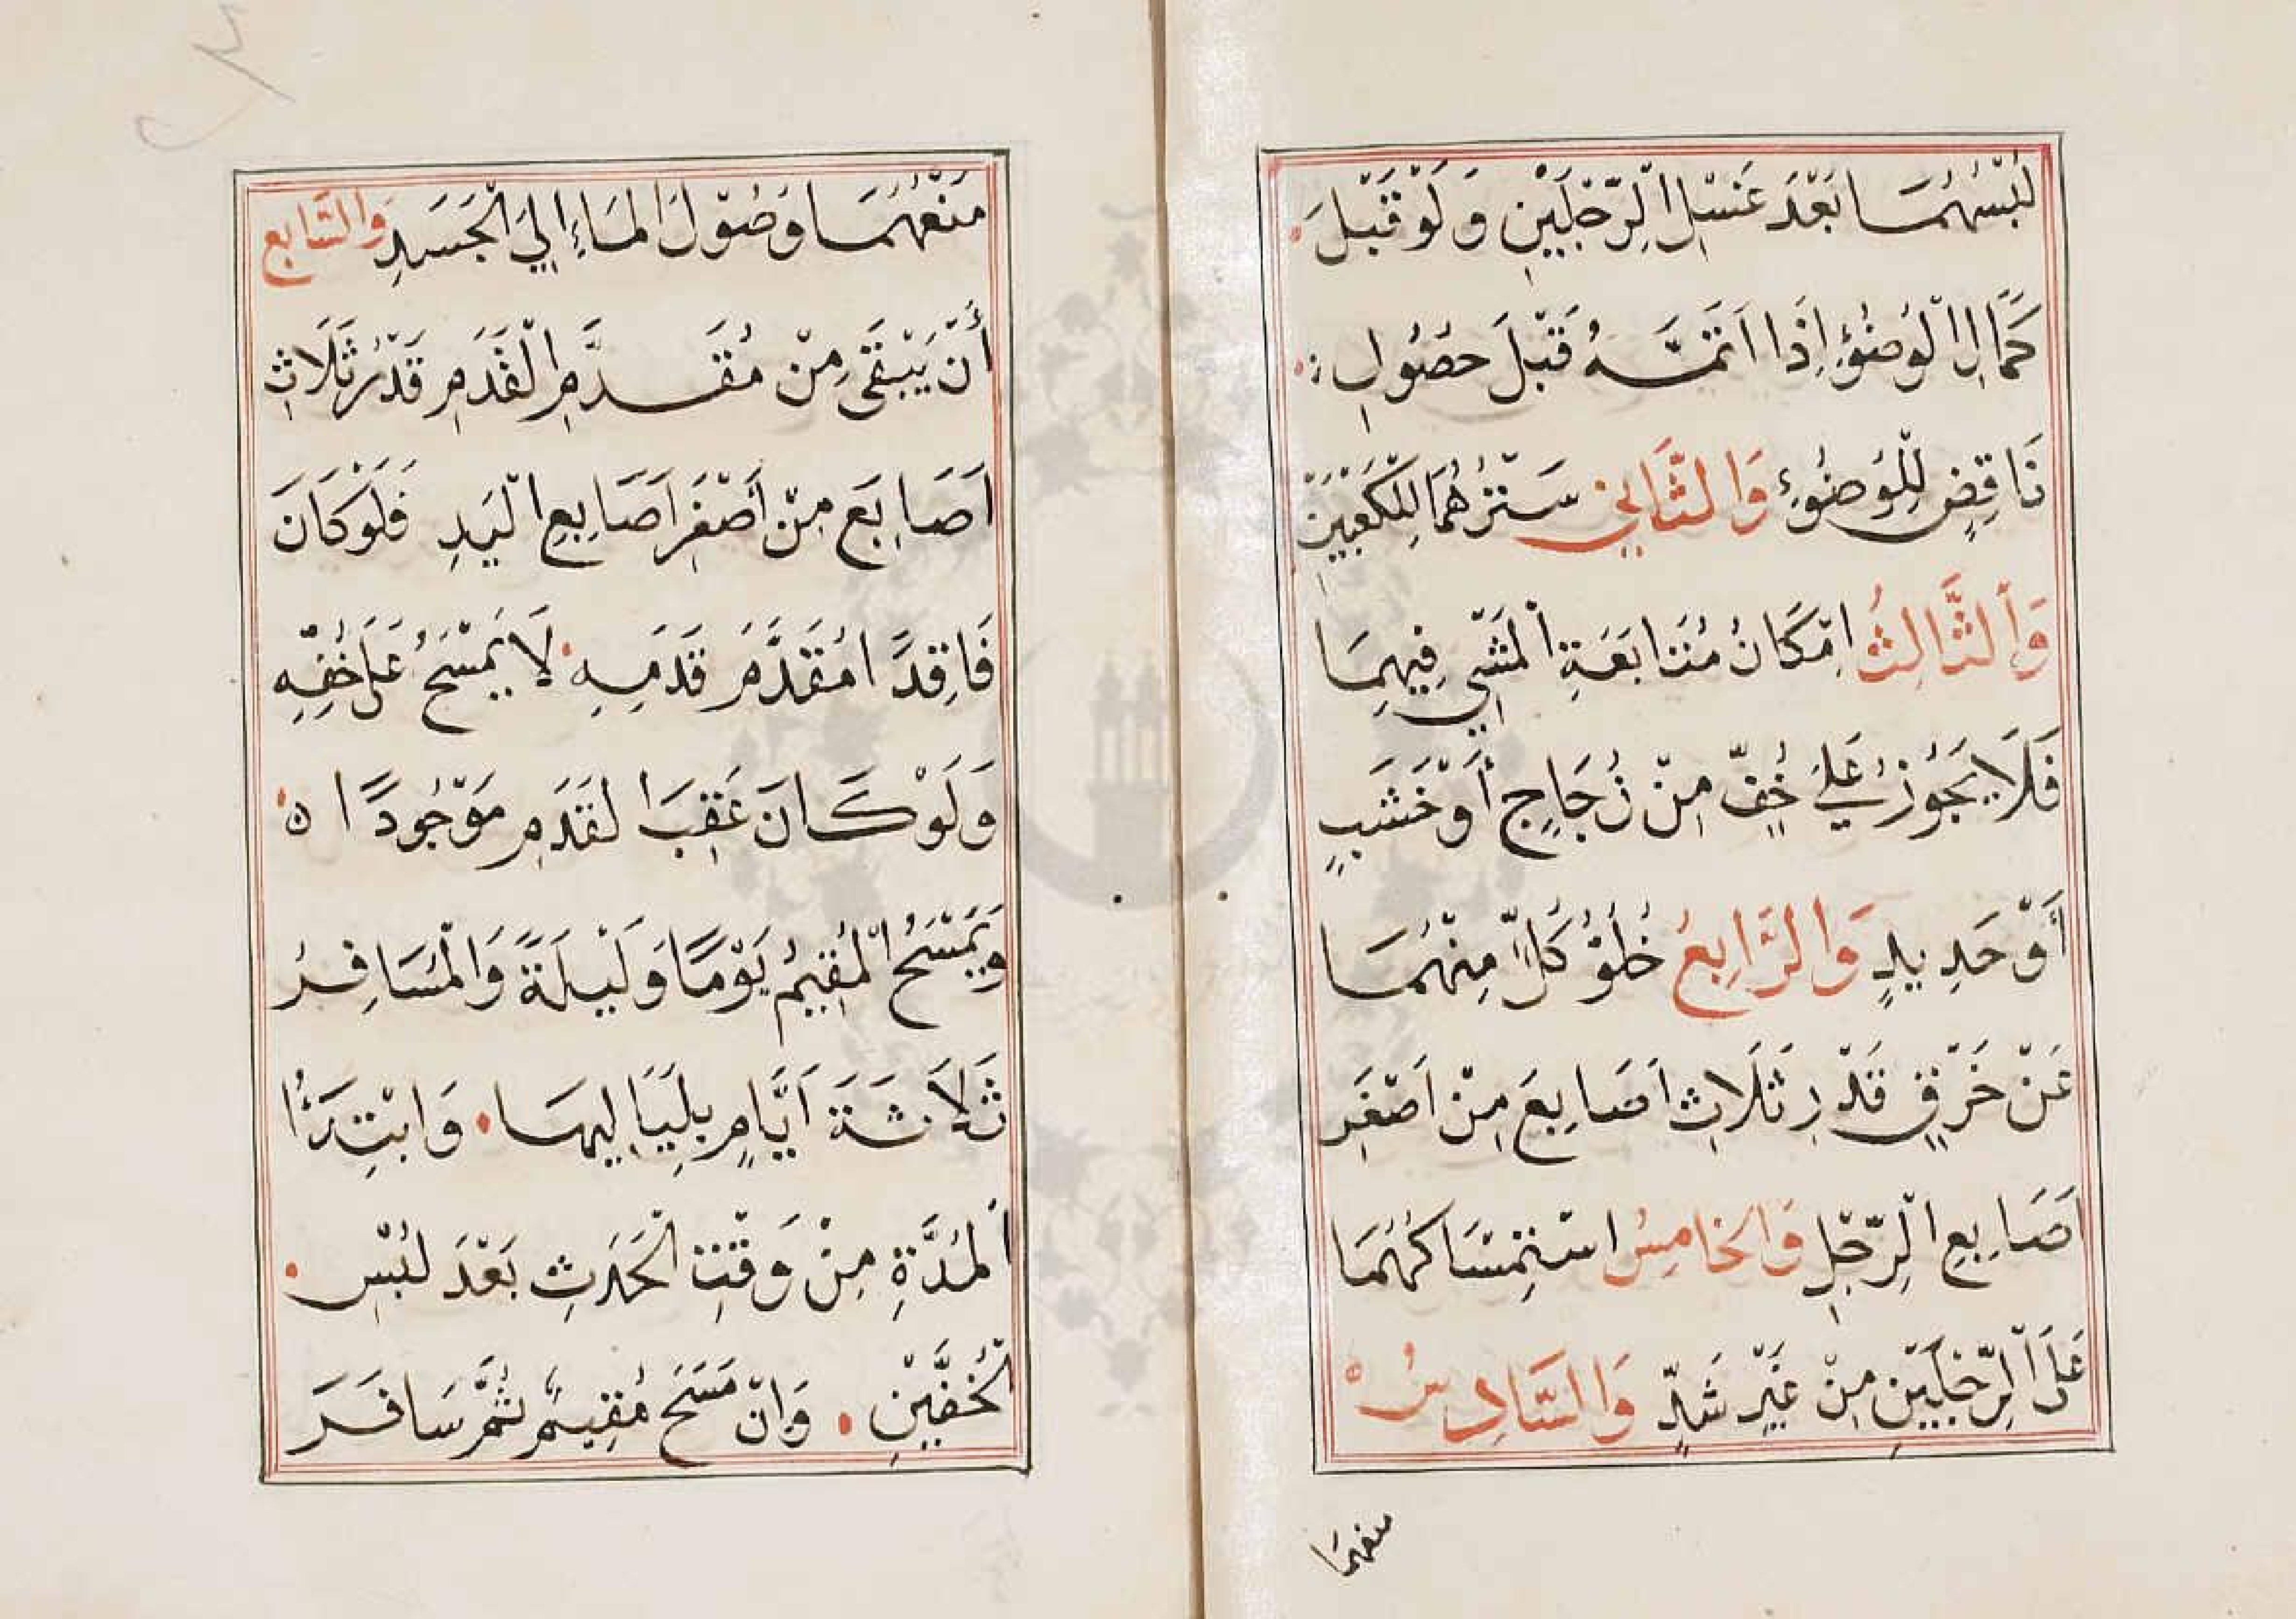 لُبْسُهُمَا بَعْدَ غَسْلِ الرِّجْلَيْنِ وَلَوْ قَبْلَ
كَمَالِ الْوُضُوْءِ اِذَا اَتَمَّهُ قَبْلَ حُصُولِ
نَاقِضٍ لِلْوُضُوْءِ وَالثَّانِي سَتْرُهُمَا لِلْكَعْبَيْنِ
وَالثَّالِثُ اِمْكَانُ مُتَابَعَةِ الْمَشْيِ فِيهِمَا
فَلَا يَجُوْزُ عَلَي خُفٍّ مِنْ زُجَاجٍ أَوْ خَشَبٍ
أَوْ حَدِيدٍ وَالرَّابِعُ خُلُوُّ كُلٍّ مِنْهُمَا
عَنْ خَرْقٍ قَدْرِ ثَلَاثِ اَصَابِعَ مِنْ اَصْغَرِ
اَصَابِعِ الرِّجْلِ وَالْخَامِسُ اسْتِمْسَاكُهُمَا
عَلَى الرِّجْلَيْنِ مِنْ غَيْرِ شَدٍّ وَالسَّادِسُ
منعهما
مَنْعُهُمَا وُصُوْلَ الْمَاءِ اِلَي الْجَسَدِ وَالسَّابِعُ
أَنْ يَبْقَى مِنْ مُقَدَّمِ الْقَدَمِ قَدْرُ ثَلَاثِ
اَصَابِعَ مِنْ اَصْغَرِ اَصَابِعِ الْيَدِ فَلَوْ كَانَ
فَاقِدًا مُقَدَّمَ قَدَمِهِ لَا يَمْسَحُ عَلَى خُفِّهِ
وَلَوْ كَانَ عَقِبَ الْقَدَمِ مَوْجُودًا ه
وَيَمْسَحُ الْمُقِيْمُ يَوْمًا وَلَيْلَةً وَالْمُسَافِرُ
ثَلَاثَةَ اَيَّامٍ بِلَيَالِيهَا وَابْتِدَاءُ
الْمُدَّةِ مِنْ وَقْتِ الْحَدَثِ بَعْدَ لُبْسِ
الْخُفَّيْنِ وَاِنْ مَسَحَ مُقِيمٌ ثُمَّ سَافَرَ